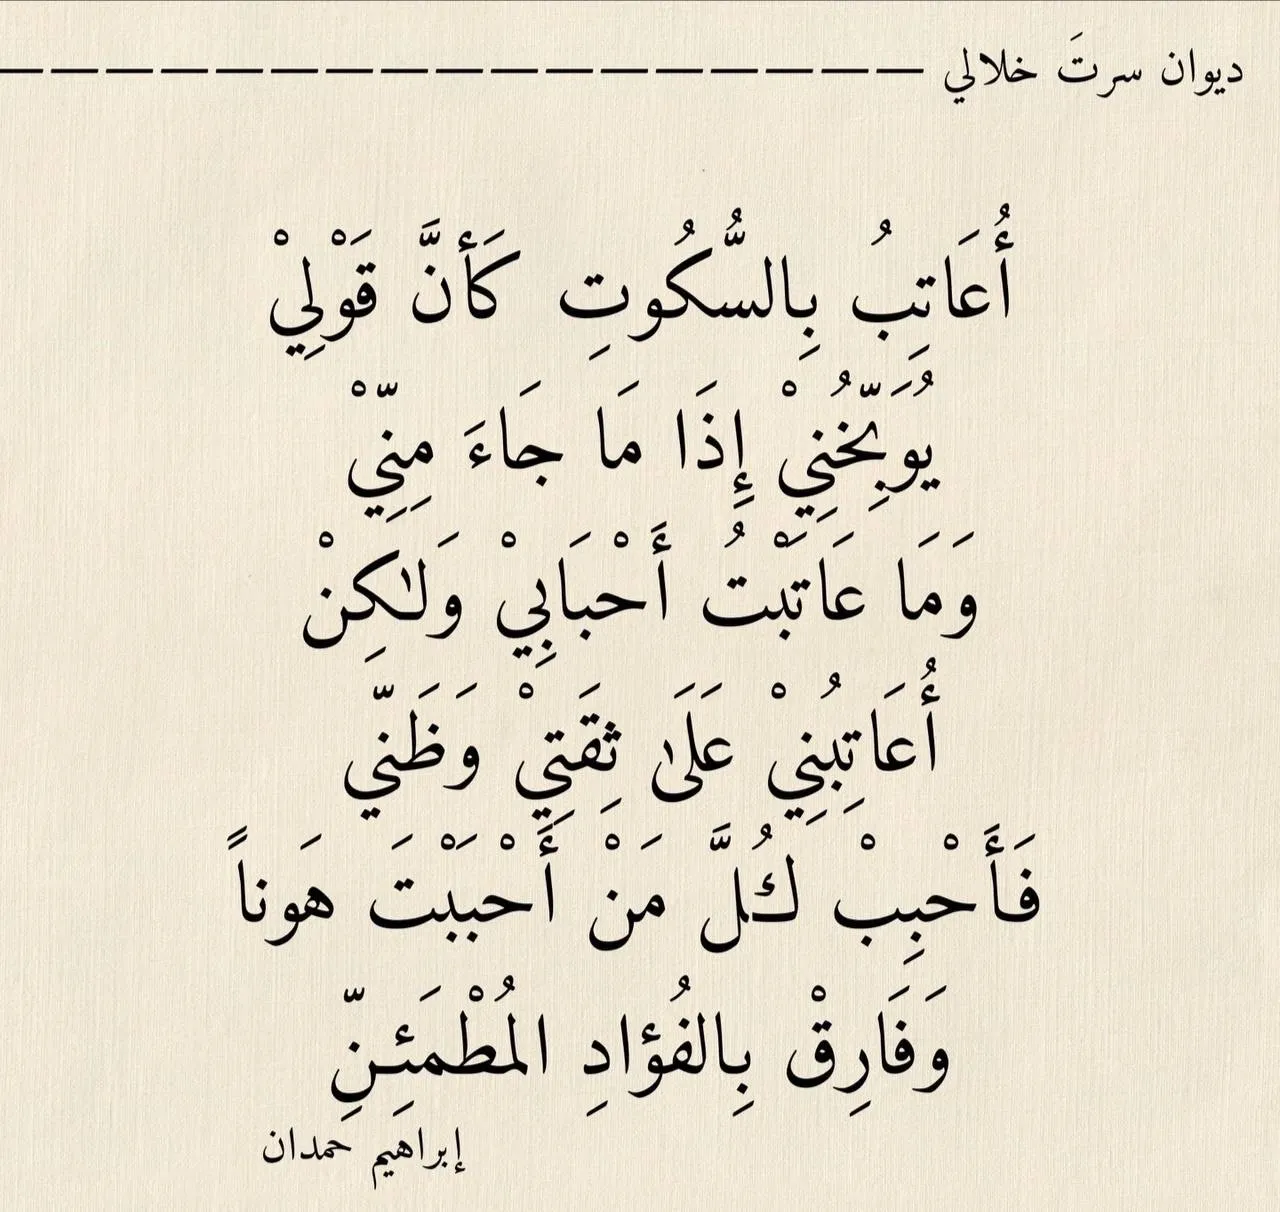 ديوان سرتَ خلالي
أُعَاتِبُ بِالسُّكُوتِ كَأَنَّ قَوْلِيْ
يُوَبِّخُنِيْ إِذَا مَا جَاءَ مِنِّيْ
وَمَا عَاتَبْتُ أَحْبَابِيْ وَلٰكِنْ
أُعَاتِبُنِيْ عَلَىٰ ثِقَتِيْ وَظَنِّي
فَأَحْبِبْ كُلَّ مَنْ أَحْبَبْتَ هَوناً
وَفَارِقْ بِالفُؤادِ المُطْمَئِنِّ
إبراهيم حمدان